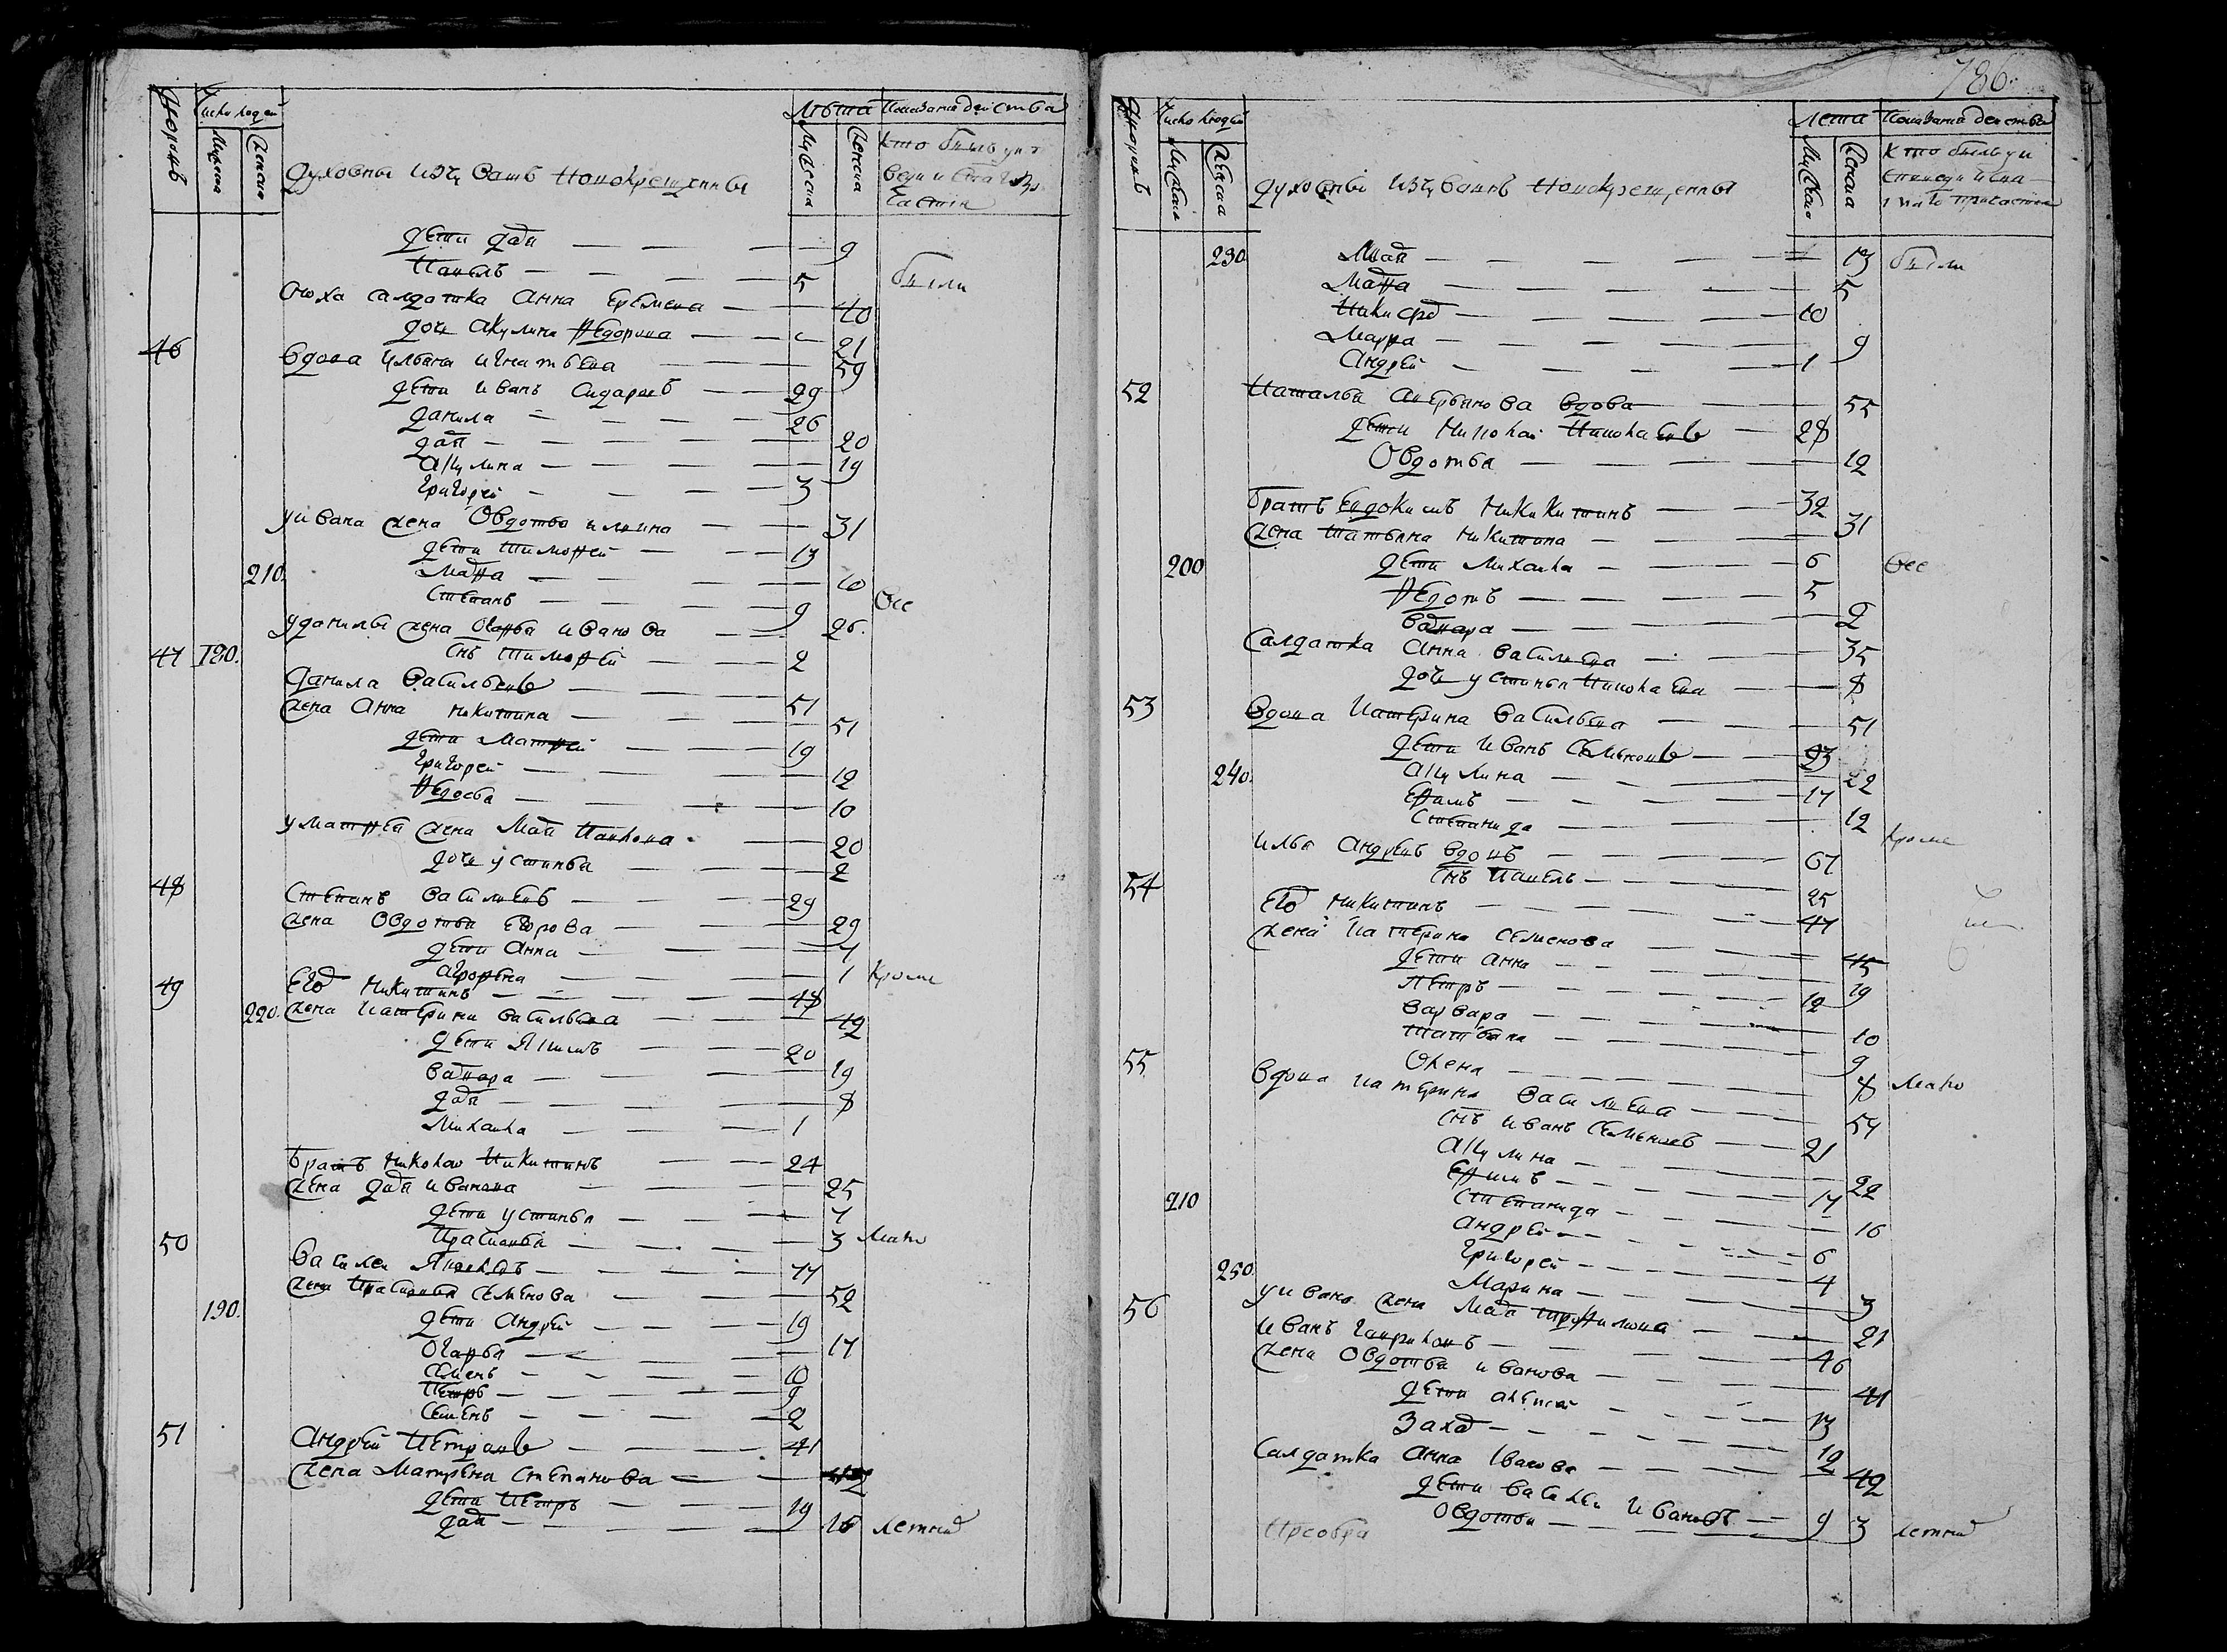 Дворовъ Число людей Мужеска Женска Духовны изъ Чювашъ новокрещенны Лѣта Мужеска Женска Показание действа
кто былъ у исповеди и святаго причастия
дети Дая 9
Павелъ 5 были
сноха салдатка Анна Еремеева 40
дочь Акулина Федорова 21
46 вдова Ульяна Игнатьева 59
дети Иванъ Сидаровъ 29
Данила 26
Дая 20
Акулина 19
Григорей 3
у Ивана жена Овдотья Ильина 31
дети Тимофей 13
210. Мавра 10
Степанъ 9 Все
у Данилы жена Иванова 26.
снъ Тимофей 2
47 180. Данила Васильевъ 51
жена Анна Никитина 51
дети Матфей 19
Григорей 12
Федосья 10
у Матфея жена Мая Павлова 20
дочь Устинья 2
48 Степанъ Васильевъ 29
жена Овдотья Егорова 29
дети Анна 7
Агрофена 1 кроме
49 Его Никитинъ 48
220. жена Катерина Васильева 42
дети Якимъ 20
Варвара 19
Дая 8
Михаила 1
братъ Николай Никитинъ 24
жена Дая Иванова 25
дети Устинья 7
Прасковья 3 мало
50 Василей Яковлевъ 77
жена Прасковья Семенова 52
190. дети Андрей 19
Огафья 17
Семенъ 10
Петръ 9
Семенъ 2
51 Андрей Петровъ 41
жена Матрена Степанова
дети Петръ 19
Дая 16 летныхъ
786.
Дворовъ Число людей Мужеска Женска Духовны изъ Чювашъ новокрещенны Лета Мужеска Женска Показание действа
кто былъ у исповеди и святаго причастия
230 Мая 13 были
Мавра 5
Никифоръ 10
Марфа 9
Андрей 1
52 Наталья вдова 55
дети Николай Николаевъ 28
Овдотья 12
братъ Евдокимъ Никитинъ 32
жена Татьяна Никитина 31
200 дети Михаила 6 Все
Федотъ 5
Варвара 2
салдатка Анна Васильева 35
дочь Устинья Николаева 8
53 вдова Катерина Васильева 51
дети Иванъ Семеновъ 23
240. Акулина 22
Ефимъ 17
Степанида 12
Илья Андреевъ вдовъ 67 кроме
снъ Павелъ 25
54 Его Никитинъ 47
жена Катерина Семенова 45
дети Анна 19
Петръ 12
Варвара 10
Татьяна 9
Олена 8 мало
55 вдова Катерина Васильева 54
снъ Иванъ Семеновъ 21
Акулина 22
Ефимъ 17
210 Степанида 16
Андрей 6
Григорей 4
250 Марина 3
у Ивана жена Мая Трофимова 21
56 Иванъ Гавриловъ 46
жена Овдотья Иванова 41
дети Алексей 13
Захаръ 12
салдатка Анна Iванова 42
дети Василей Ивановъ 9
Овдотья 3 летныхъ
Преобра